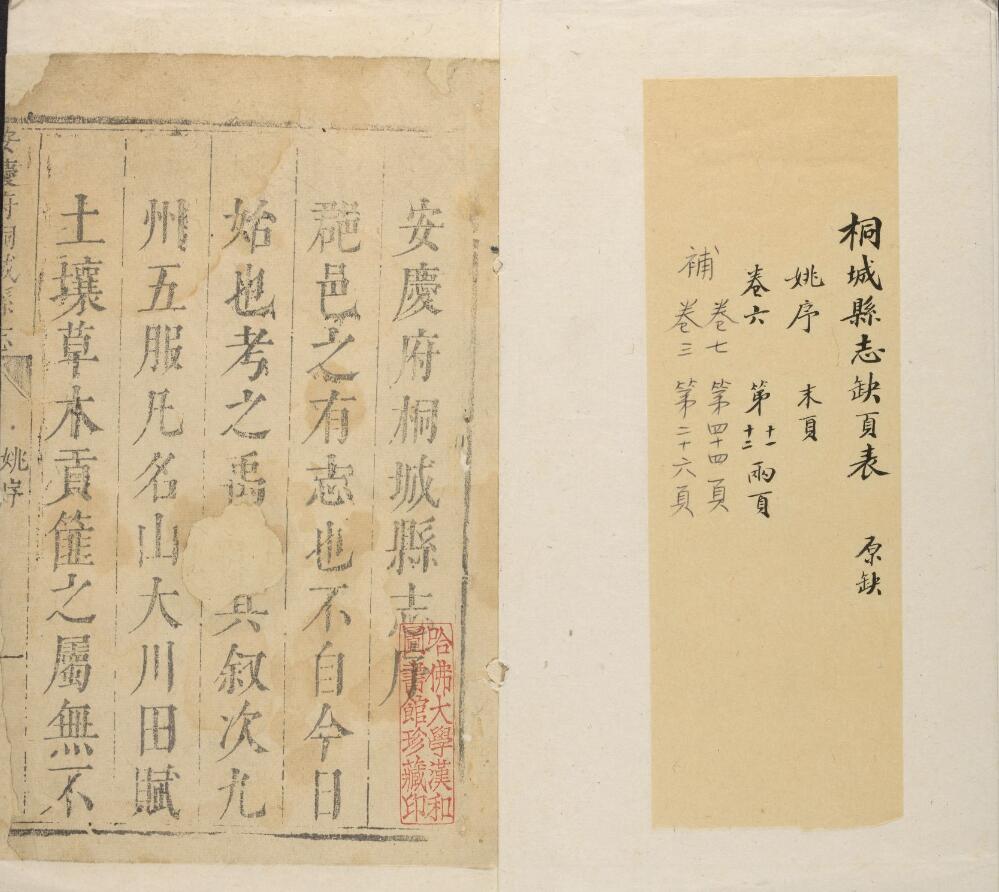 桐城縣志缺頁表 原缺
姚序 末頁
卷六 第十一十二兩頁
補 卷七 第四十四頁
卷三 第二十六頁
安慶府桐城縣志序
郡邑之有志也不自今日
始也考之禹 其叙次九
州五服凡名山大川田賦
土壤草木貢篚之屬無不
安慶府桐城縣志 姚序 一
哈佛大學漢和
圖書館珍藏印